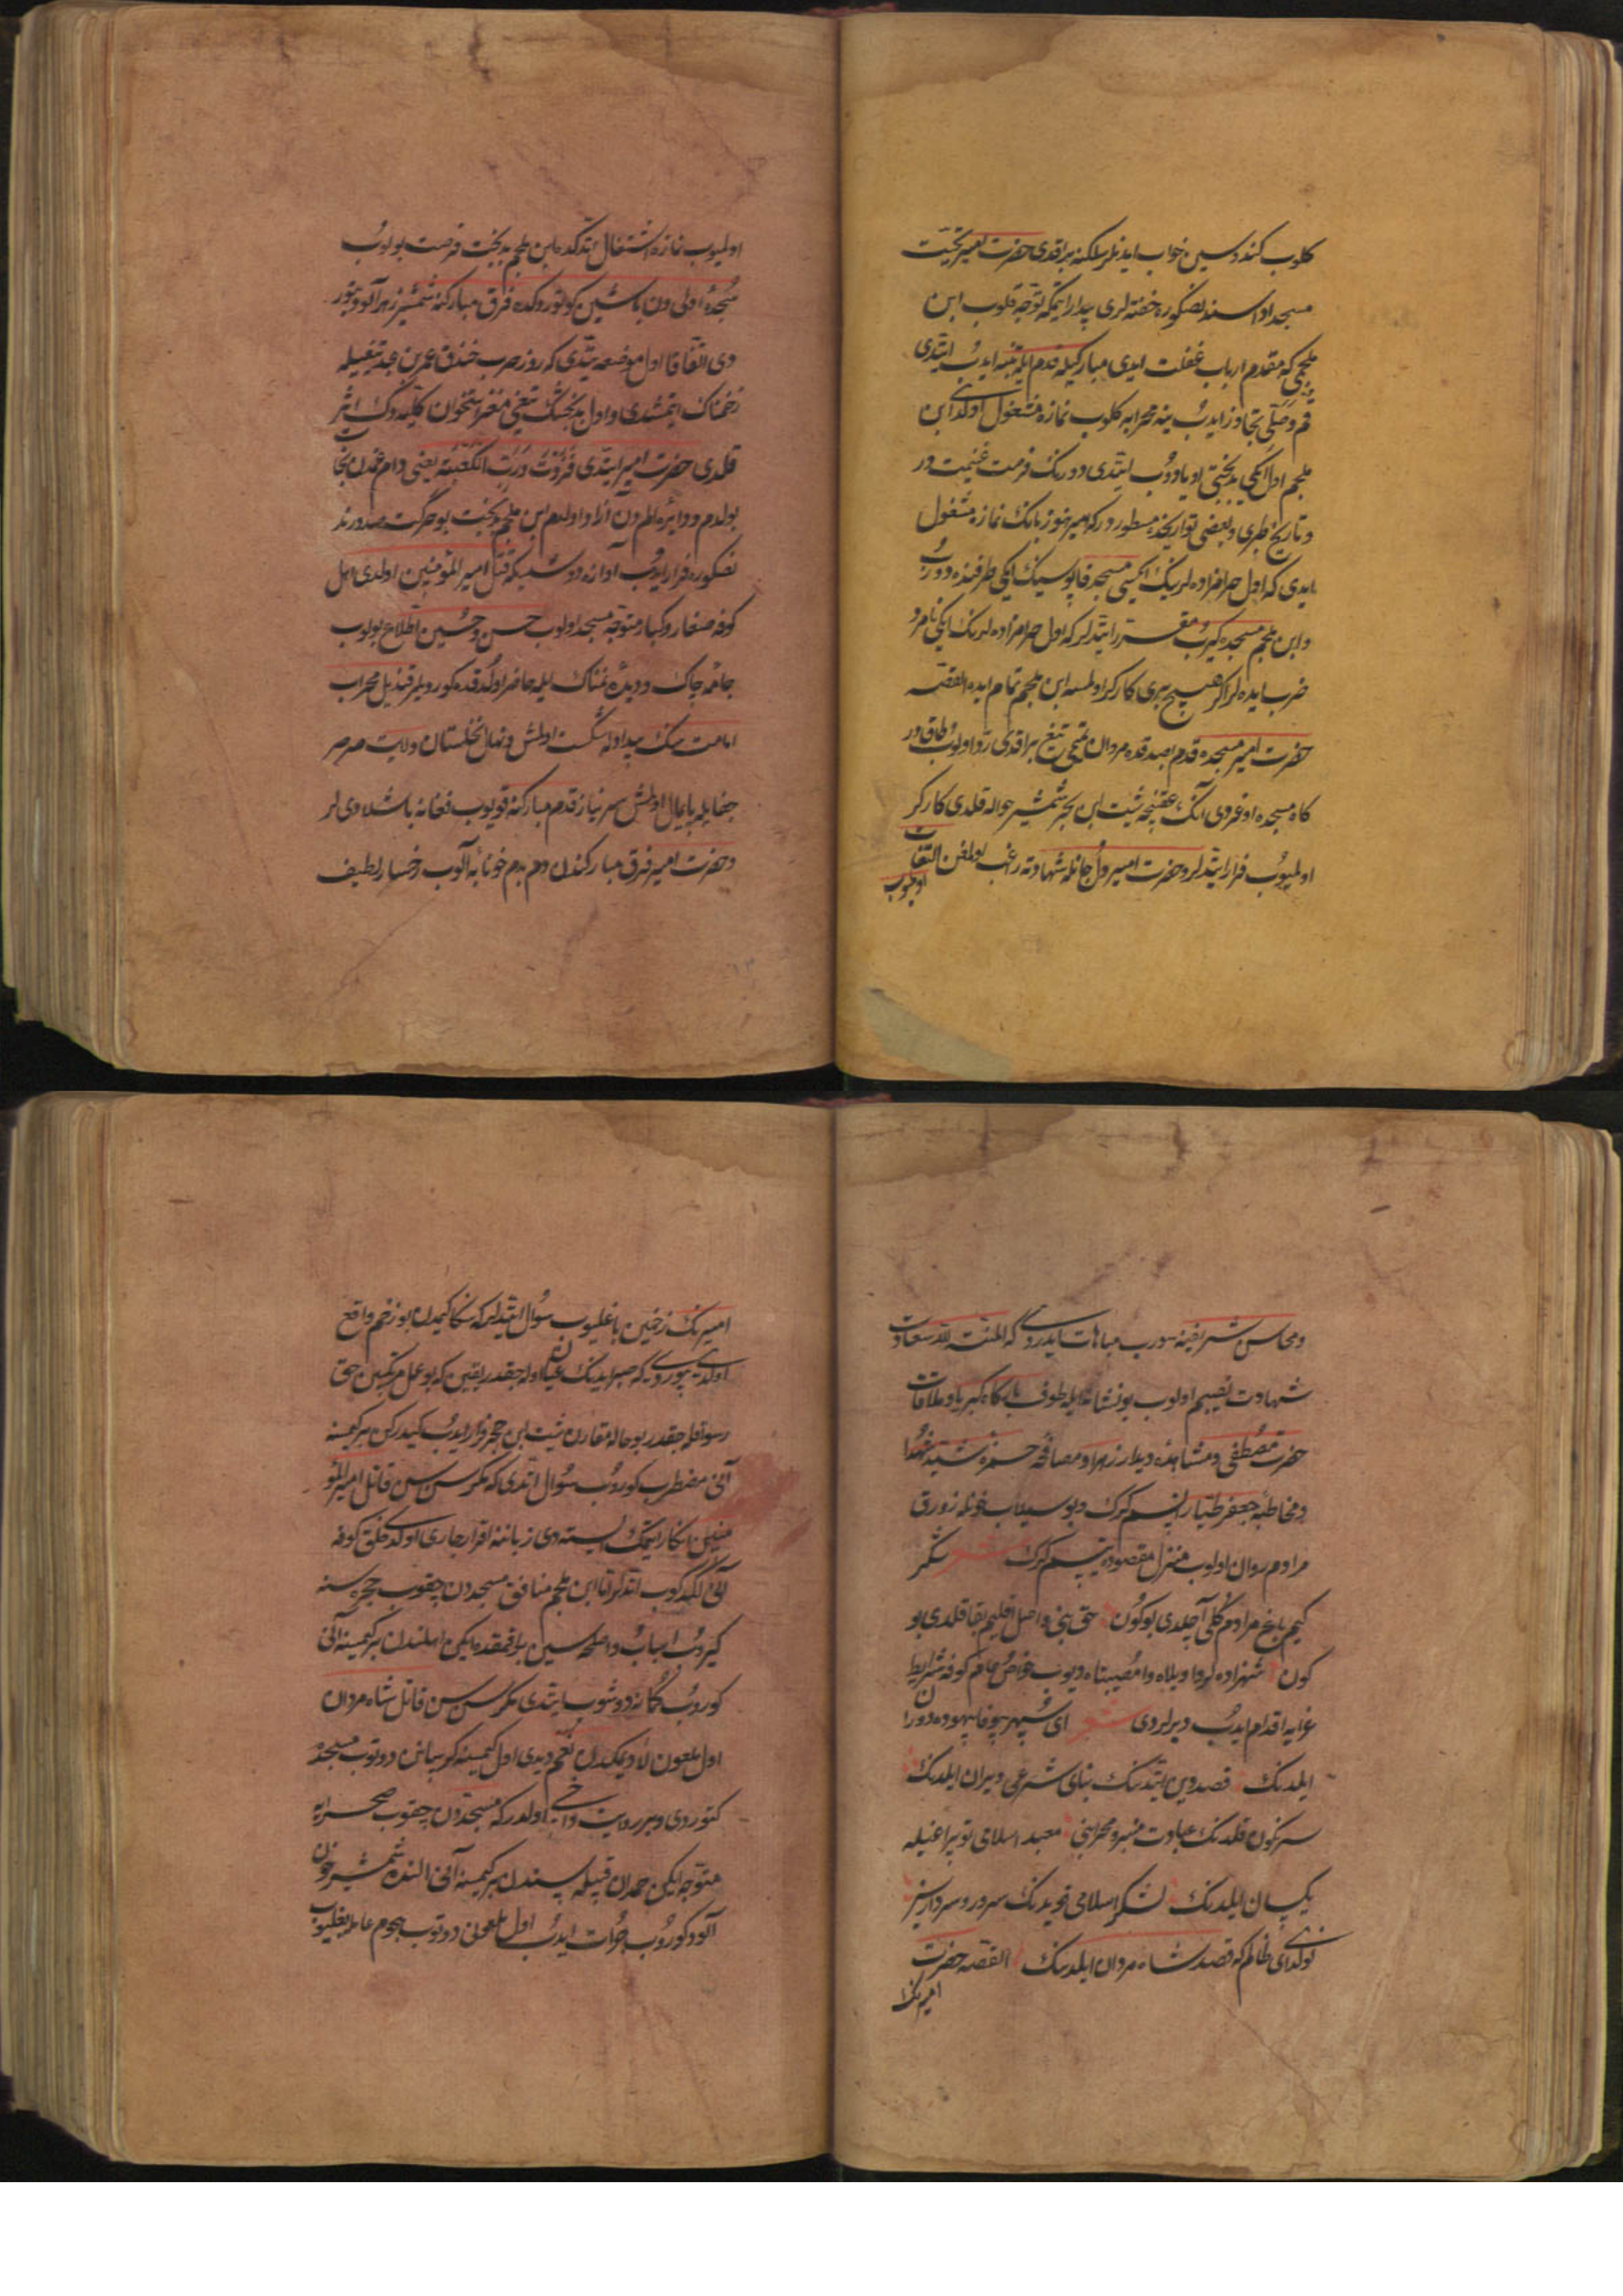 كلوب كندوسین خواب ایدنلر سلكنه براقدی حضرت امیر تحیّت
مسجد اداسندنصكوره خفته لری بیدار ایتمگه توجّه قلوب ابن
ملجمی كه مقدم ارباب غفلت ایدی مباركیله قدم ایله تنبیه ایدُب ایتدی
قم وصَلّی تجاوز ایدُب ینه محرابه كلوب نمازه مشغول اولدی ابن
ملجم اول ایكی بدبختی اویادوُب ایتدی دورنك فرصت غنیمت در
وتاریخ طبری وبعضی تواریخده مسطوردر كه امیر هنوز بانك نمازه مشغول
ایدی كه اول حرامزاده لرینك ایكیسی مسجد قاپوسینك ایكی طرفنده دوروُب
وابن ملجم مسجده كیرُب مقرّر ایتدلر كه اول حرامزاده لرنك ایكی نامرد
ضرب ایده لر اگر هیچ بیری كاركر اولمسه ابن ملجم تمام ایده القصّه
حضرت امیر مسجده قدم بصدقده مردان تمیمی تیغ براقدی ردّ اولوب طاق در
كاه مسجده اوغردی آنك عقبنجه شبث ابن بحر شمشیر حواله قلدی كاركر
اولمیوُب فرار ایتدلر وحضرت امیر دل جانله شهادته راغب اولمغن التفات
اولمیوب
اولمیوب نمازه اشتغال ایتدكده ابن ملجم بدبخت فرصت بولوُب
سَجدهٔ اولی دن باشین كوتوردكده فرق مباركنه شمشیر زهرآلود یتور
دی اتّفاقا اول موضعه یتدی كه روز حرب خندق عمر بن عبد تیغیله
زخمناك ایتمشدی واول بدبختك تیغی مغز استخوان كلّیه دك اثر
قلدی حضرت امیر ایتدی فَزُوْتُ وَرَبّ الكَعْبَه یعنی دام غمدن نجات
بولدم ودایرهٔ الم دن آزاد اولدم ابن ملجم بدبخت بو حركت صدورند
نصكوره فرار ایدوُب آوازه دوشدیكه قُتِلَ امیر المؤمنین اولدی اهل
كوفه صغار وكبار متوجّه مسجد اولوب حسن وحُسین اطّلاع بولوب
جامه چاك ودیدهٔ نمناك ایله حاضر اولدقده كوردیلر قندیل محراب
امامت سنك بیداد له شكست اولمش ونهال نخلستان ولایت صرصر
جفایله پایمال اولمش سر نیاز قدم مباركنه قویوب فغانه باشلادی لر
وحضرت امیر فرق مباركندن دم بدم خونابه آلوب رخسار لطیف
ومحاسن شریفنه سورب مباهات ایدردی كه المنّت لله سعادت
شهادت نصیبم اولوب بو نشانه ایله طوف بارگاه كبریا وملاقات
حضرت مُصطفی ومشاهدهٔ دیدار زهرا ومصافحهٔ حمزهٔ سیّد شهدا
ومخاطبهٔ جعفر طیّار ایتسم كرك وبو سیلاب خونله زورق
مرادم روان اولوب منزل مقصوده یتسم كرك شعر شكر
كیم باغ مرادم گلی آچلدی بو كوُن حق بنی واصل اقلیم بقا قلدی بو
كون شهزاده لر وا ویلاه وا مُصیبتاه دیوب خواصُ عام كوفه شرایط
عزایه اقدام ایدُب دیرلردی شعر ای سُپهر بیوفا بیهوده دوران
ایلدنك قصد دین ایتدنك بنای شرعی ویران ایلدنك
سرنكون قلدنك عبادت منبر ومحرابنی معبد اسلامی توپراغیله
یكسان ایلدنك لشكر اسلامی قویدنك سرور وسردارسز
نولدی ای ظالم كه قصد شاه مردان ایلدنك القصّه حضرت
امیرنك
امیرنك زخمین باغلیوب سُوال ایتدیلر كه سكا كیمدن بو زخم واقع
اولدی بیوردی كه صبر ایدنك عیان اوله جقدر یقین كه بو عمل مرتكبین حق
رسوا قله جقدر بو حاله مقارن شبث ابن بحر فرار ایدُب كیدركن بر كیمسه
آنی مضطرب كوروُب سُوال ایتدی كه مگر سن سین قاتل امیر المؤ
منین انكار ایتمك ایسته دی زباننه اقرار جاری اولدی خلق كوفه
آنی لگدكوب ایتدلر امّا ابن ملجم منافق مسجددن چقوب حجره سنه
كیردی اسباب واسلحه سین براقمقده ایكن اهلندن بر كیمسه آنی
كوروُب گمانه دوشوب ایتدی مگر سن سن قاتل شاه مردان
اول ملعون لا دیمكدن نعم دیدی اول كیمسه كریبانین دوتوب مسجده
كتوردی وبر روایت داخی اولدر كه مسجددن چقوب صحرایه
متوجّه ایكن حمدان قبیله سندن بر كیمسه آنی النده شمشیر خون
آلود كوروُب جرات ایدُب اول ملعونی دوتوب هجوم عامله باغلیوب